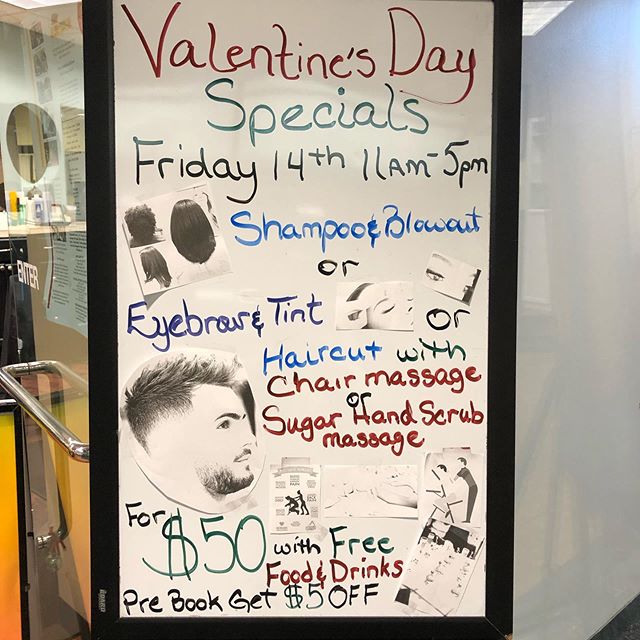 Valentine's Day
Specials
Friday 14th 11AM-5pm
Shampoo & Blowout
or
Eyebrow & Tint
or
Haircut with
Chair massage
or
Sugar Hand Scrub
massage
For
$50
with Free
Food & Drinks
Pre Book Get $5 OFF
ENTER